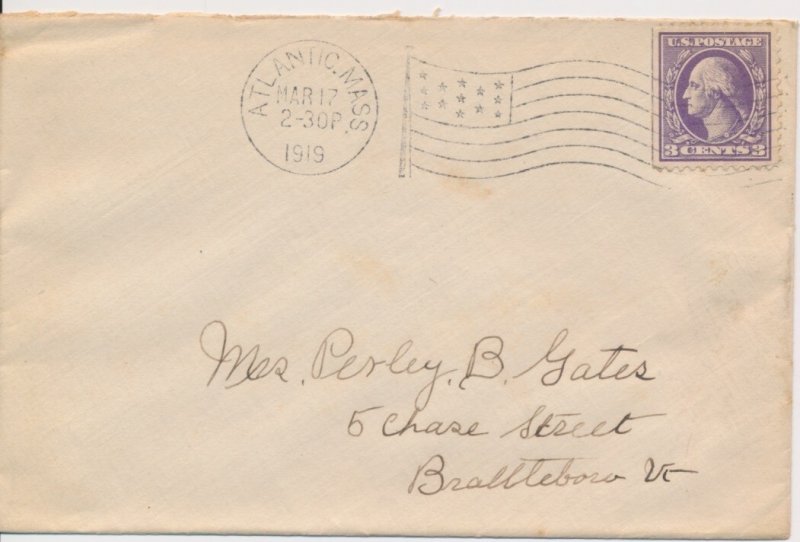 ATLANTIC. MASS.
MAR 17
2-30P
1919
U.S. POSTAGE
3 CENTS 3
Mrs. Perley. B. Gates
5 Chase Street
Brattleboro Vt